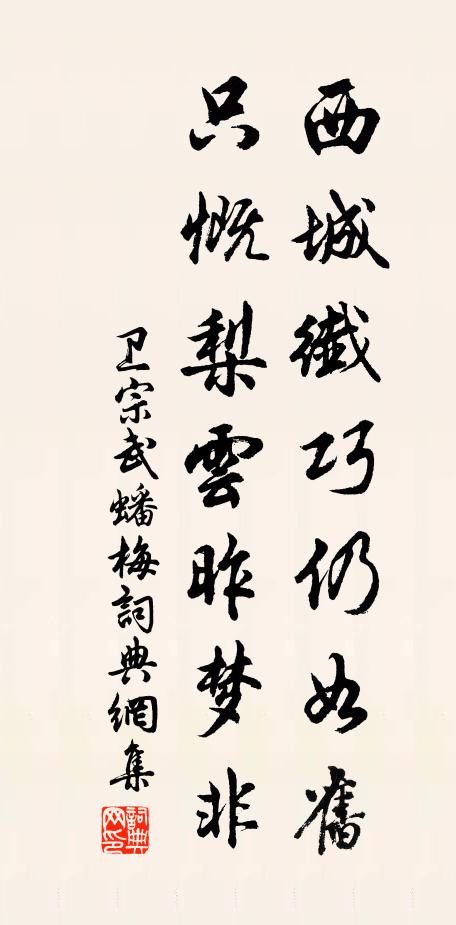 西城纖巧仍如舊
只慨梨雲昨梦非
卫宗武蟠梅詞典網集
詞典网印